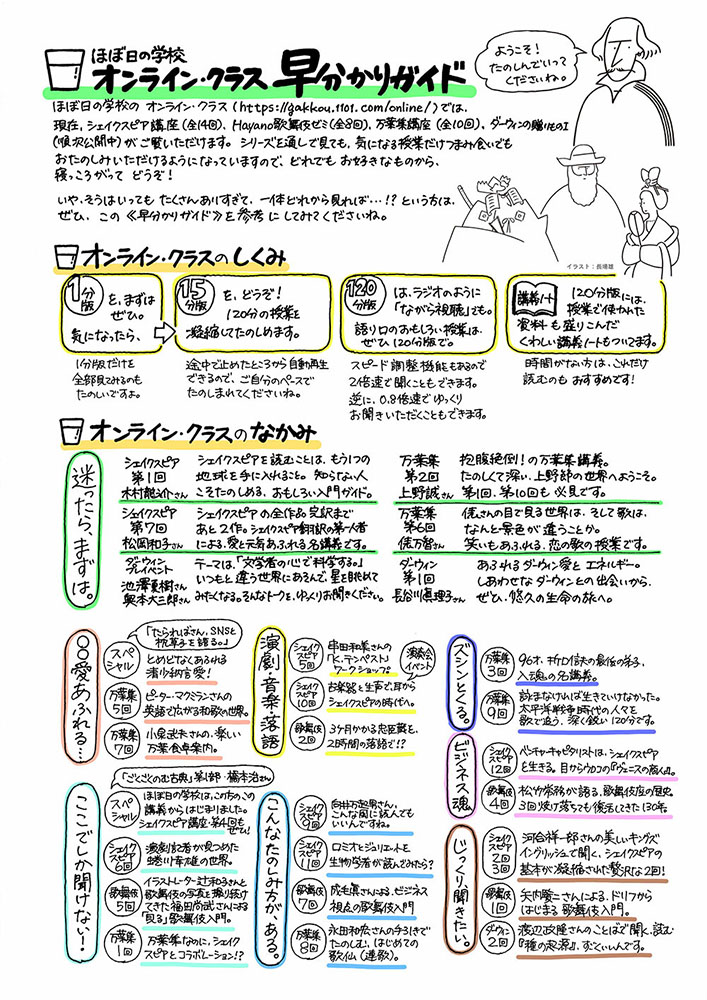 ほぼ日の学校
オンライン・クラス 早分かりガイド
ようこそ!
たのしんでいって
くださいね。
ほぼ日の学校の オンライン・クラス(https://gakkou.1101.com/online/)では、
現在、シェイクスピア講座(全14回)、Hayano歌舞伎ゼミ(全8回)、万葉集講座(全10回)、ダーウィンの贈りものI
(順次公開中)がご覧いただけます。シリーズを通しで見ても、気になる授業だけつまみ食いでも
おたのしみいただけるようになっていますので、どれでもお好きなものから、
寝っころがって どうぞ!
いや、そうはいっても たくさんありすぎて、一体どれから見れば…!?という方は、
ぜひ、この《早分かりガイド》を参考にしてみてくださいね。
イラスト:長場雄
オンライン・クラスのしくみ
1分版 を、まずは
ぜひ。
気になったら、
1分版だけを
全部見てみるのも
たのしいですよ。
15分版 を、どうぞ!
120分の授業を
凝縮してたのしめます。
途中で止めたところから自動再生
できるので、ご自分のペースで
たのしまれてくださいね。
120分版 は、ラジオのように
「ながら視聴」でも。
語り口のおもしろい授業は、
ぜひ120分版で。
スピード調整機能もあるので
2倍速で聞くこともできます。
逆に、0.8倍速でゆっくり
お聞きいただくこともできます。
講義ノート 120分版には、
授業で使われた
資料も盛りこんだ
くわしい講義ノートもついてます。
時間がない方は、これだけ
読むのも おすすめです!
オンライン・クラスのなかみ
迷ったら、まずは。
シェイクスピア
第1回
木村龍之介さん
シェイクスピアを読むことは、もう1つの
地球を手に入れること。知らない人
こそたのしめる、おもしろい入門ガイド。
シェイクスピア
第7回
松岡和子さん
シェイクスピアの全作品完訳まで
あと2作。シェイクスピア翻訳の第一人者
による、愛と元気あふれる名講義です。
ダーウィン
プレイベント
池澤夏樹さん
奥本大三郎さん
テーマは、「文学者の心で科学する。」
いつもと違う世界にあそんで、星を眺めて
みたくなる。そんなトークを、ゆっくりお聞きください。
万葉集
第2回
上野誠さん
抱腹絶倒!の万葉集講義。
たのしくて深い、上野節の世界へようこそ。
第1回、第10回も必見です。
万葉集
第6回
俵万智さん
俵さんの目で見る世界は、そして歌は、
なんと景色が違うことか。
笑いもあふれる、恋の歌の授業です。
ダーウィン
第1回
長谷川眞理子さん
あふれるダーウィン愛と エネルギー。
しあわせなダーウィンとの出会いから、
ぜひ、悠久の生命の旅へ。
○○愛あふれる…
スペシャル
「たらればさん、SNSと
枕草子を語る。」
とめどなくあふれる
清少納言愛!
万葉集
5回
ピーター・マクミランさんの
英語で広がる和歌の世界。
万葉集
7回
小泉武夫さんの、楽しい
万葉食卓案内。
演劇・音楽・落語
シェイクスピア
5回
串田和美さんの
「K.テンペスト」
ワークショップ。
演奏会イベント
シェイクスピア
10回
古楽器と生声で、耳から
シェイクスピアの時代へ。
歌舞伎
2回
3ヶ月かかる忠臣蔵を、
2時間の落語で!?
ズシンとくる。
万葉集
3回
96才、折口信夫の最後の弟子、
入魂の名講義。
万葉集
9回
詠まなければ生きていけなかった。
太平洋戦争時代の人々を
歌で追う、深く鋭い120分です。
ビジネス魂
シェイクスピア
12回
ベンチャーキャピタリストは、シェイクスピア
と生きる。目からウロコの『ヴェニスの商人』。
歌舞伎
4回
松竹常務が語る、歌舞伎座の歴史。
3回焼け落ちても復活してきた130年。
ここでしか聞けない!
スペシャル
「ごとごとのむ古典」第1部・橋本治さん
ほぼ日の学校は、この方のこの
講義からはじまりました。
シェイクスピア講座・第4回もぜひ!
シェイクスピア
6回
演劇記者が見つめた
蜷川幸雄の世界。
歌舞伎
5回
イラストレーター辻和子さんと
歌舞伎の写真を撮り続け
てきた福田尚武さんによる
「見る」歌舞伎入門。
万葉集
1回
万葉集なのに、シェイク
スピアとコラボレーション!?
こんなたのしみ方が、ある。
シェイクスピア
9回
向井万起男さん、
こんな風に読んでも
いいんですね。
シェイクスピア
11回
ロミオとジュリエットを
生物学者が読んでみたら?
歌舞伎
7回
成毛眞さんによる、ビジネス
視点の歌舞伎入門
万葉集
8回
永田和宏さんの手引きで
たのしむ、はじめての
歌仙(連歌)。
じっくり聞きたい。
シェイクスピア
2回
3回
河合祥一郎さんの美しいキングズ
イングリッシュで聞く、シェイクスピアの
基本が凝縮された贅沢な2回!
歌舞伎
1回
矢内賢二さんによる、ドリフから
はじまる 歌舞伎入門。
ダーウィン
2回
渡辺政隆さんのことばで聞く、読む
『種の起源』、すごくいいんです。